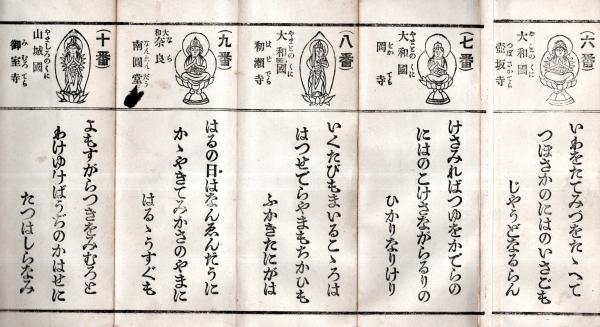 (六番)
やまとのくに
大和國
つぼさかでら
壺坂寺
いわをたてみづをたゝへて
つぼさかのにはのいさごも
じやうどなるらん
(七番)
やまとのくに
大和國
をかでら
岡寺
けさみればつゆをかでらの
にはのこけさながらるりの
ひかりなりけり
(八番)
やまとのくに
大和國
はせでら
初瀬寺
いくたびもまいるこゝろは
はつせでらやまもちかひも
ふかきたにがは
(九番)
大和
なら
奈良
なんゑんだう
南圓堂
はるの日はなんゑんだうに
かゝやきてみかさのやまに
はるゝうすぐも
(十番)
やましろのくに
山城國
みむろでら
御室寺
よもすがらつきをみむろと
わけゆけばうぢのかはせに
たつはしらなみ